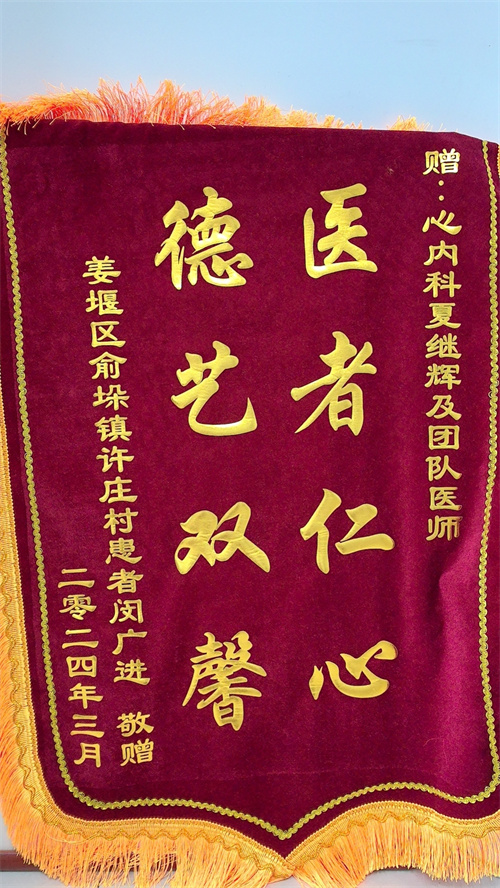 赠：心内科夏继辉及团队医师
医者仁心
德艺双馨
姜堰区俞垛镇许庄村患者闵广进 敬赠
二零二四年三月